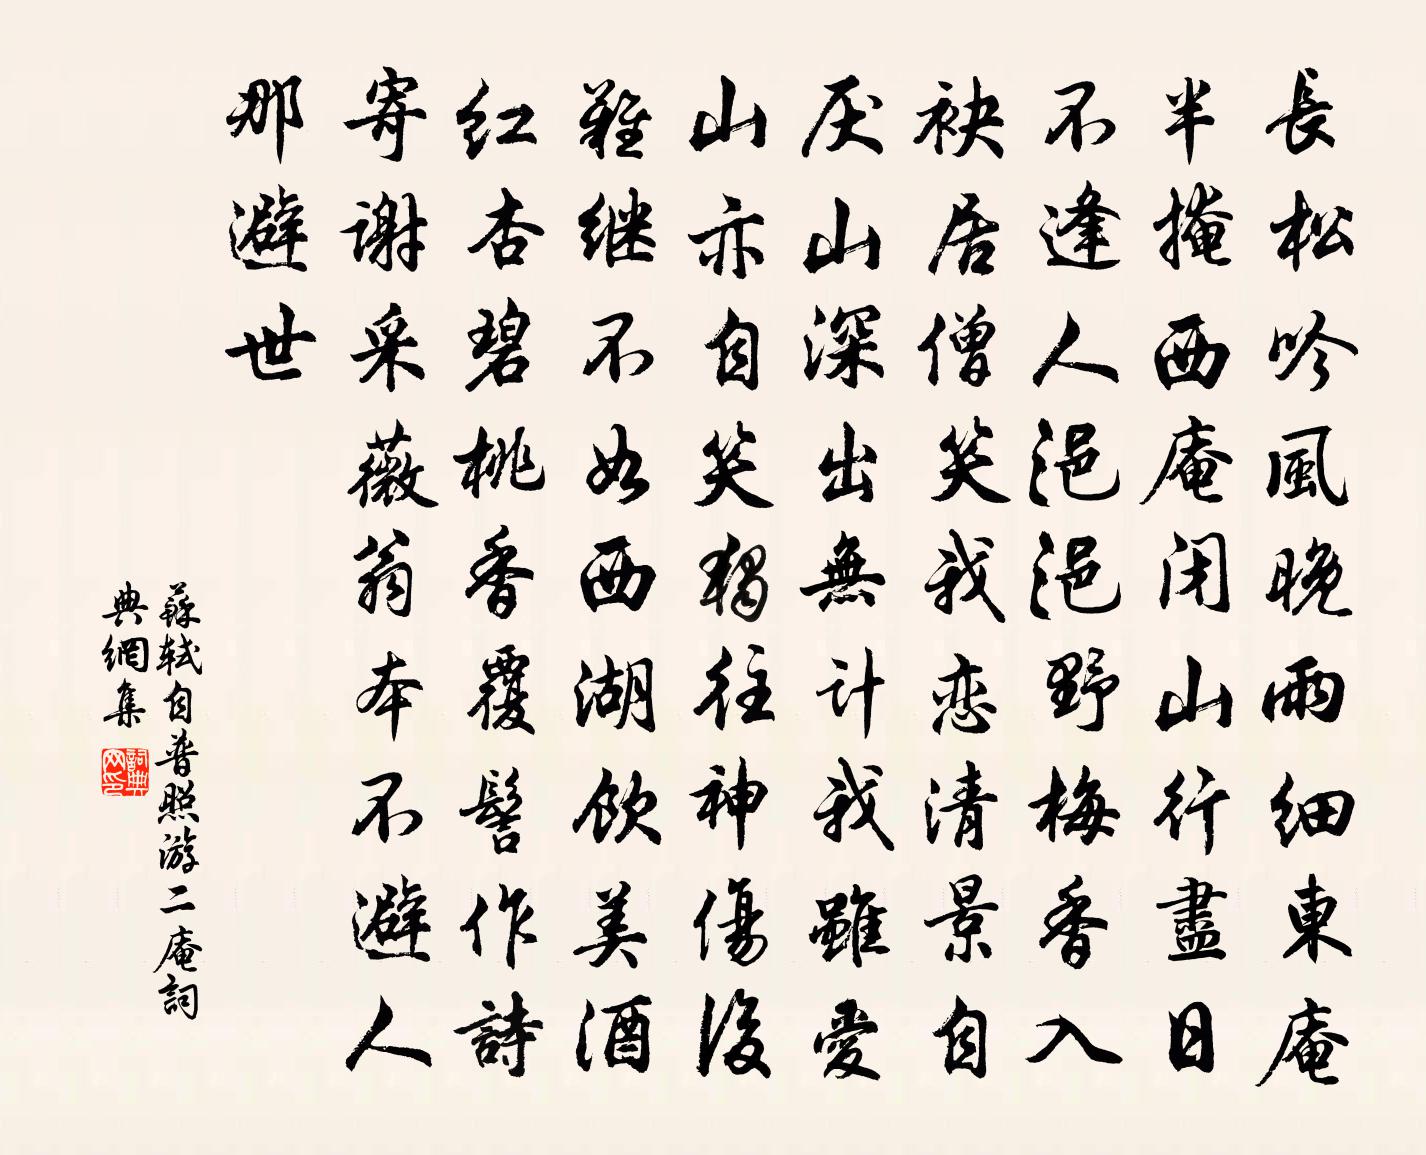 長松吟風晚雨細東庵
半掩西庵闭山行盡日
不逢人浥浥野梅香入
袂居僧笑我恋清景自
厌山深出無计我雖愛
山亦自笑獨往神傷後
難继不如西湖飲美酒
红杏碧桃香覆髻作詩
寄謝采薇翁本不避人
那避世
蘇轼自普照游二庵詞
典網集
詞典网印